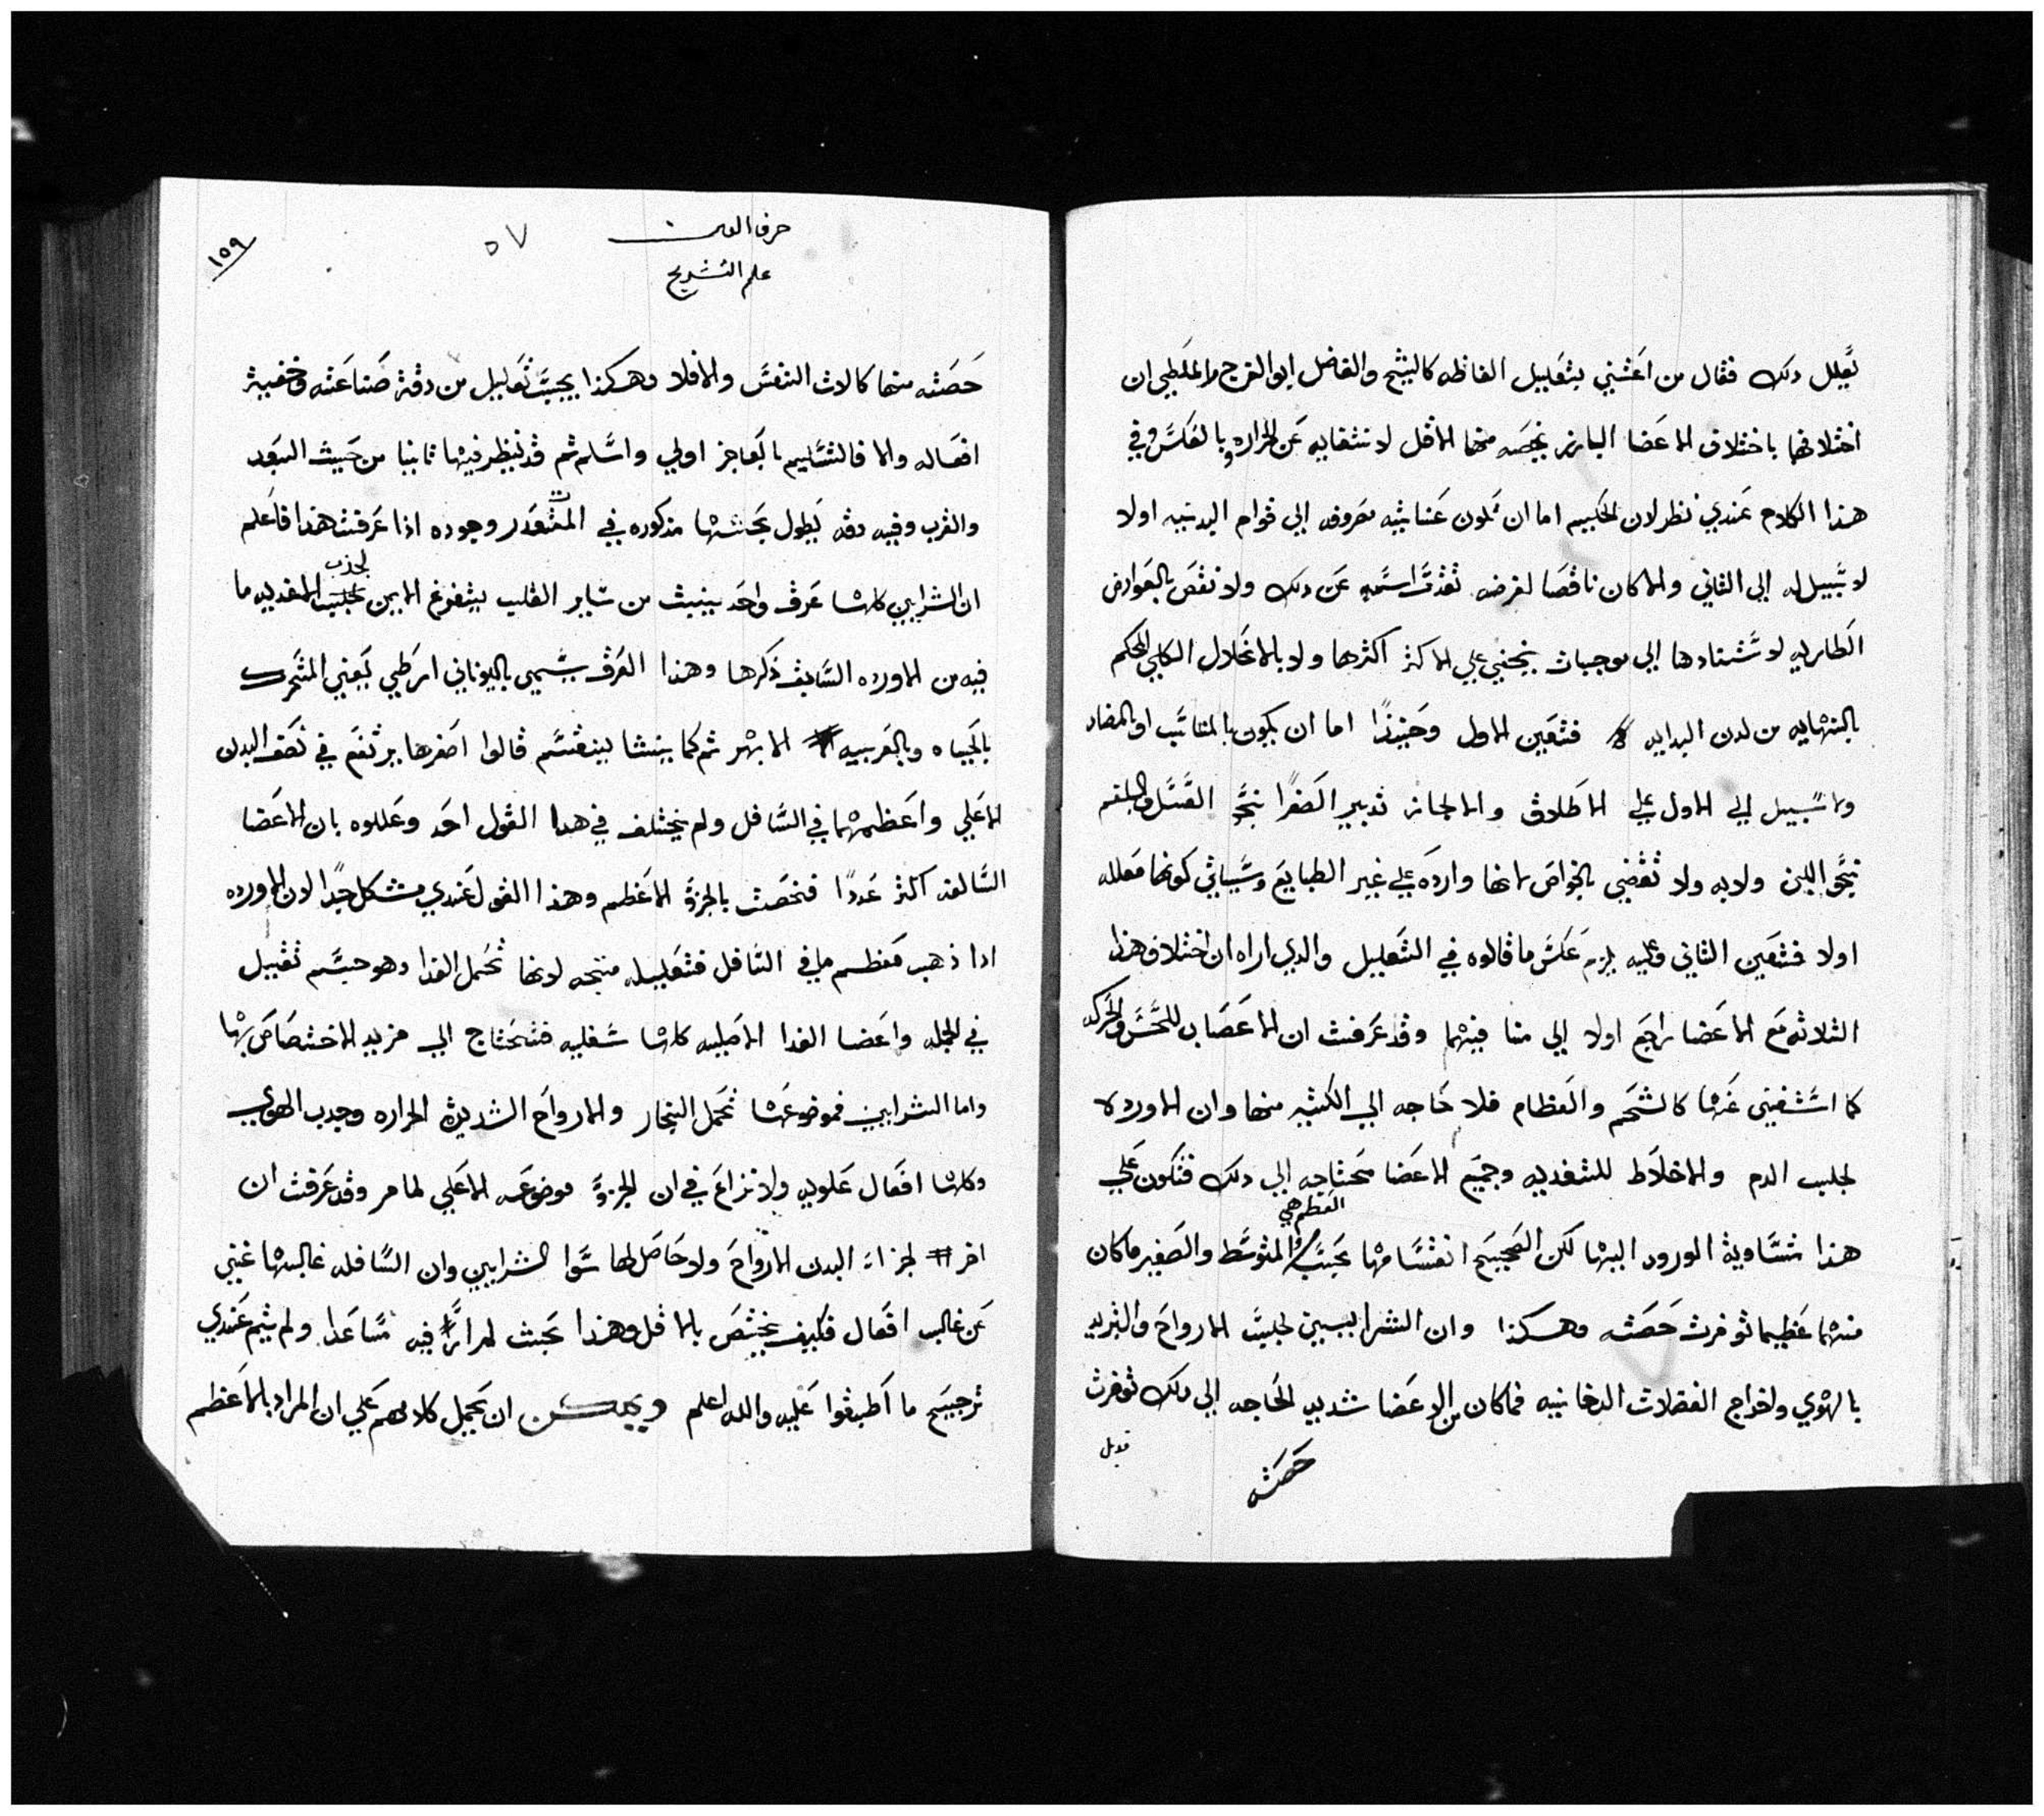 تعليل دلك فقال من اعتني بتعليل الفاظه كالشيخ والفاضل ابو الفرج والملطي ان
اختلافها باختلاف الاعضا البارز يخصه منها الاقل لاستغنايه عن الحراره وبالعكس وفي
هذا الكلام عندي نظر لان الحكيم اما ان تكون عنايته مصروفه الي قوام البدنيه اولا
لا سبيل له الي الثاني والا كان ناقصا لغرضه تقدست اسمه عن دلك ولا نقص بالعوارض
الطاريه لاستنادها الي موجبات يختفي علي الاكثر اكثرها ولا بالانحلال الكلي الحكم
بالنهايه من لدن البدايه فتعين الاول وحينئذا اما ان يكون بالمناسب او بالمضاد
ولا سبيل الي الاول علي الاطلاق والا لجاز تدبير الصفرا بنحو العسل والبلغم
بنحو اللبن ولا به ولا تقضي بالخواص لانها وارده علي غير الطبايع وسياتي كونها معلله
اولا فتعين الثاني وعليه يلزم عكس ما قالوه في التعليل والدي اراه ان اختلاف هذا
الثلاثه مع الاعضا راجع اولا الي منافيها وقد عرفت ان الاعصاب للحس والحركه
كما استغني عنها كالشحم والعظام فلا حاجه الي الكثير منها وان الاورده
لجلب الدم والاخلاط للتغديه وجميع الاعضا محتاجه الي دلك فتكون علي
العظم هي
هذا متساوية الورود اليها لكن الصحيح انقسامها بحسب المتوسط والصغير ما كان
منها عظيما توفرت حصته وهكذا وان الشرايين لجلب الارواح والتبريد
بالهوي واخراج الفضلات الدخانيه فما كان من الاعضا شديد الحاجه الي دلك توفرت
حصته
قوبل
حرف العين
علم التشريح
٥٧
١٥٩
حصته منها كالات التنفس والا فلا وهكذا يجب تعليل من دقة صناعته وخفية
افعاله والا فالتسليم بالعاجز اولي واسلم ثم قد ينظر فيها ثانيا من حيث البعد
والقرب وفيه دقه يطول بحثها مذكوره في المتعدر وجوده اذا عرفت هذا فاعلم
لجذب
ان الشرايين كلها عرق واحد ينبث من ساير القلب بتفرغ الايمن لجلب التغديه ما
فيه من الاورده السابق ذكرها وهذا العرق يسمي باليوناني ارطي يعني المتحرك
بالحياه وبالعربيه الابهر ثم كما ينشا ينقسم قالوا اصغرها يرتفع في نصف البدن
الاعلي واعظمها في السافل ولم يختلف في هدا القول احد وعللوه بان الاعضا
السالفه اكثر عددا فخصت بالجزؤ الاعظم وهذا القول عندي مشكل جدا لان الاورده
ادا ذهب معظمها في السافل فتعليله متجه لانها تحمل الغدا وهو جسم تقيل
في الجمله واعضا الغدا الاصليه كلها سفليه فتحتاج الي مزيد الاختصاص بها
واما الشرايين فموضوعها تحمل البخار والارواح الشديدة الحراره وجدب الهوي
وكلها افعال علويه ولا نزاع في ان الجزؤ موضوعه الاعلي لما مر وقد عرفت ان
اخر اجزاء البدن الارواح ولا حاصل لها سوا الشرايين وان السافله غالبها غني
عن غالب افعال فكيف يختص بالاقل وهذا بحث لم ار فيه مساعدا ولم يتم عندي
ترجيح ما اطبقوا عليه والله اعلم ويمكن ان يحمل كلامهم علي ان المراد بالاعظم